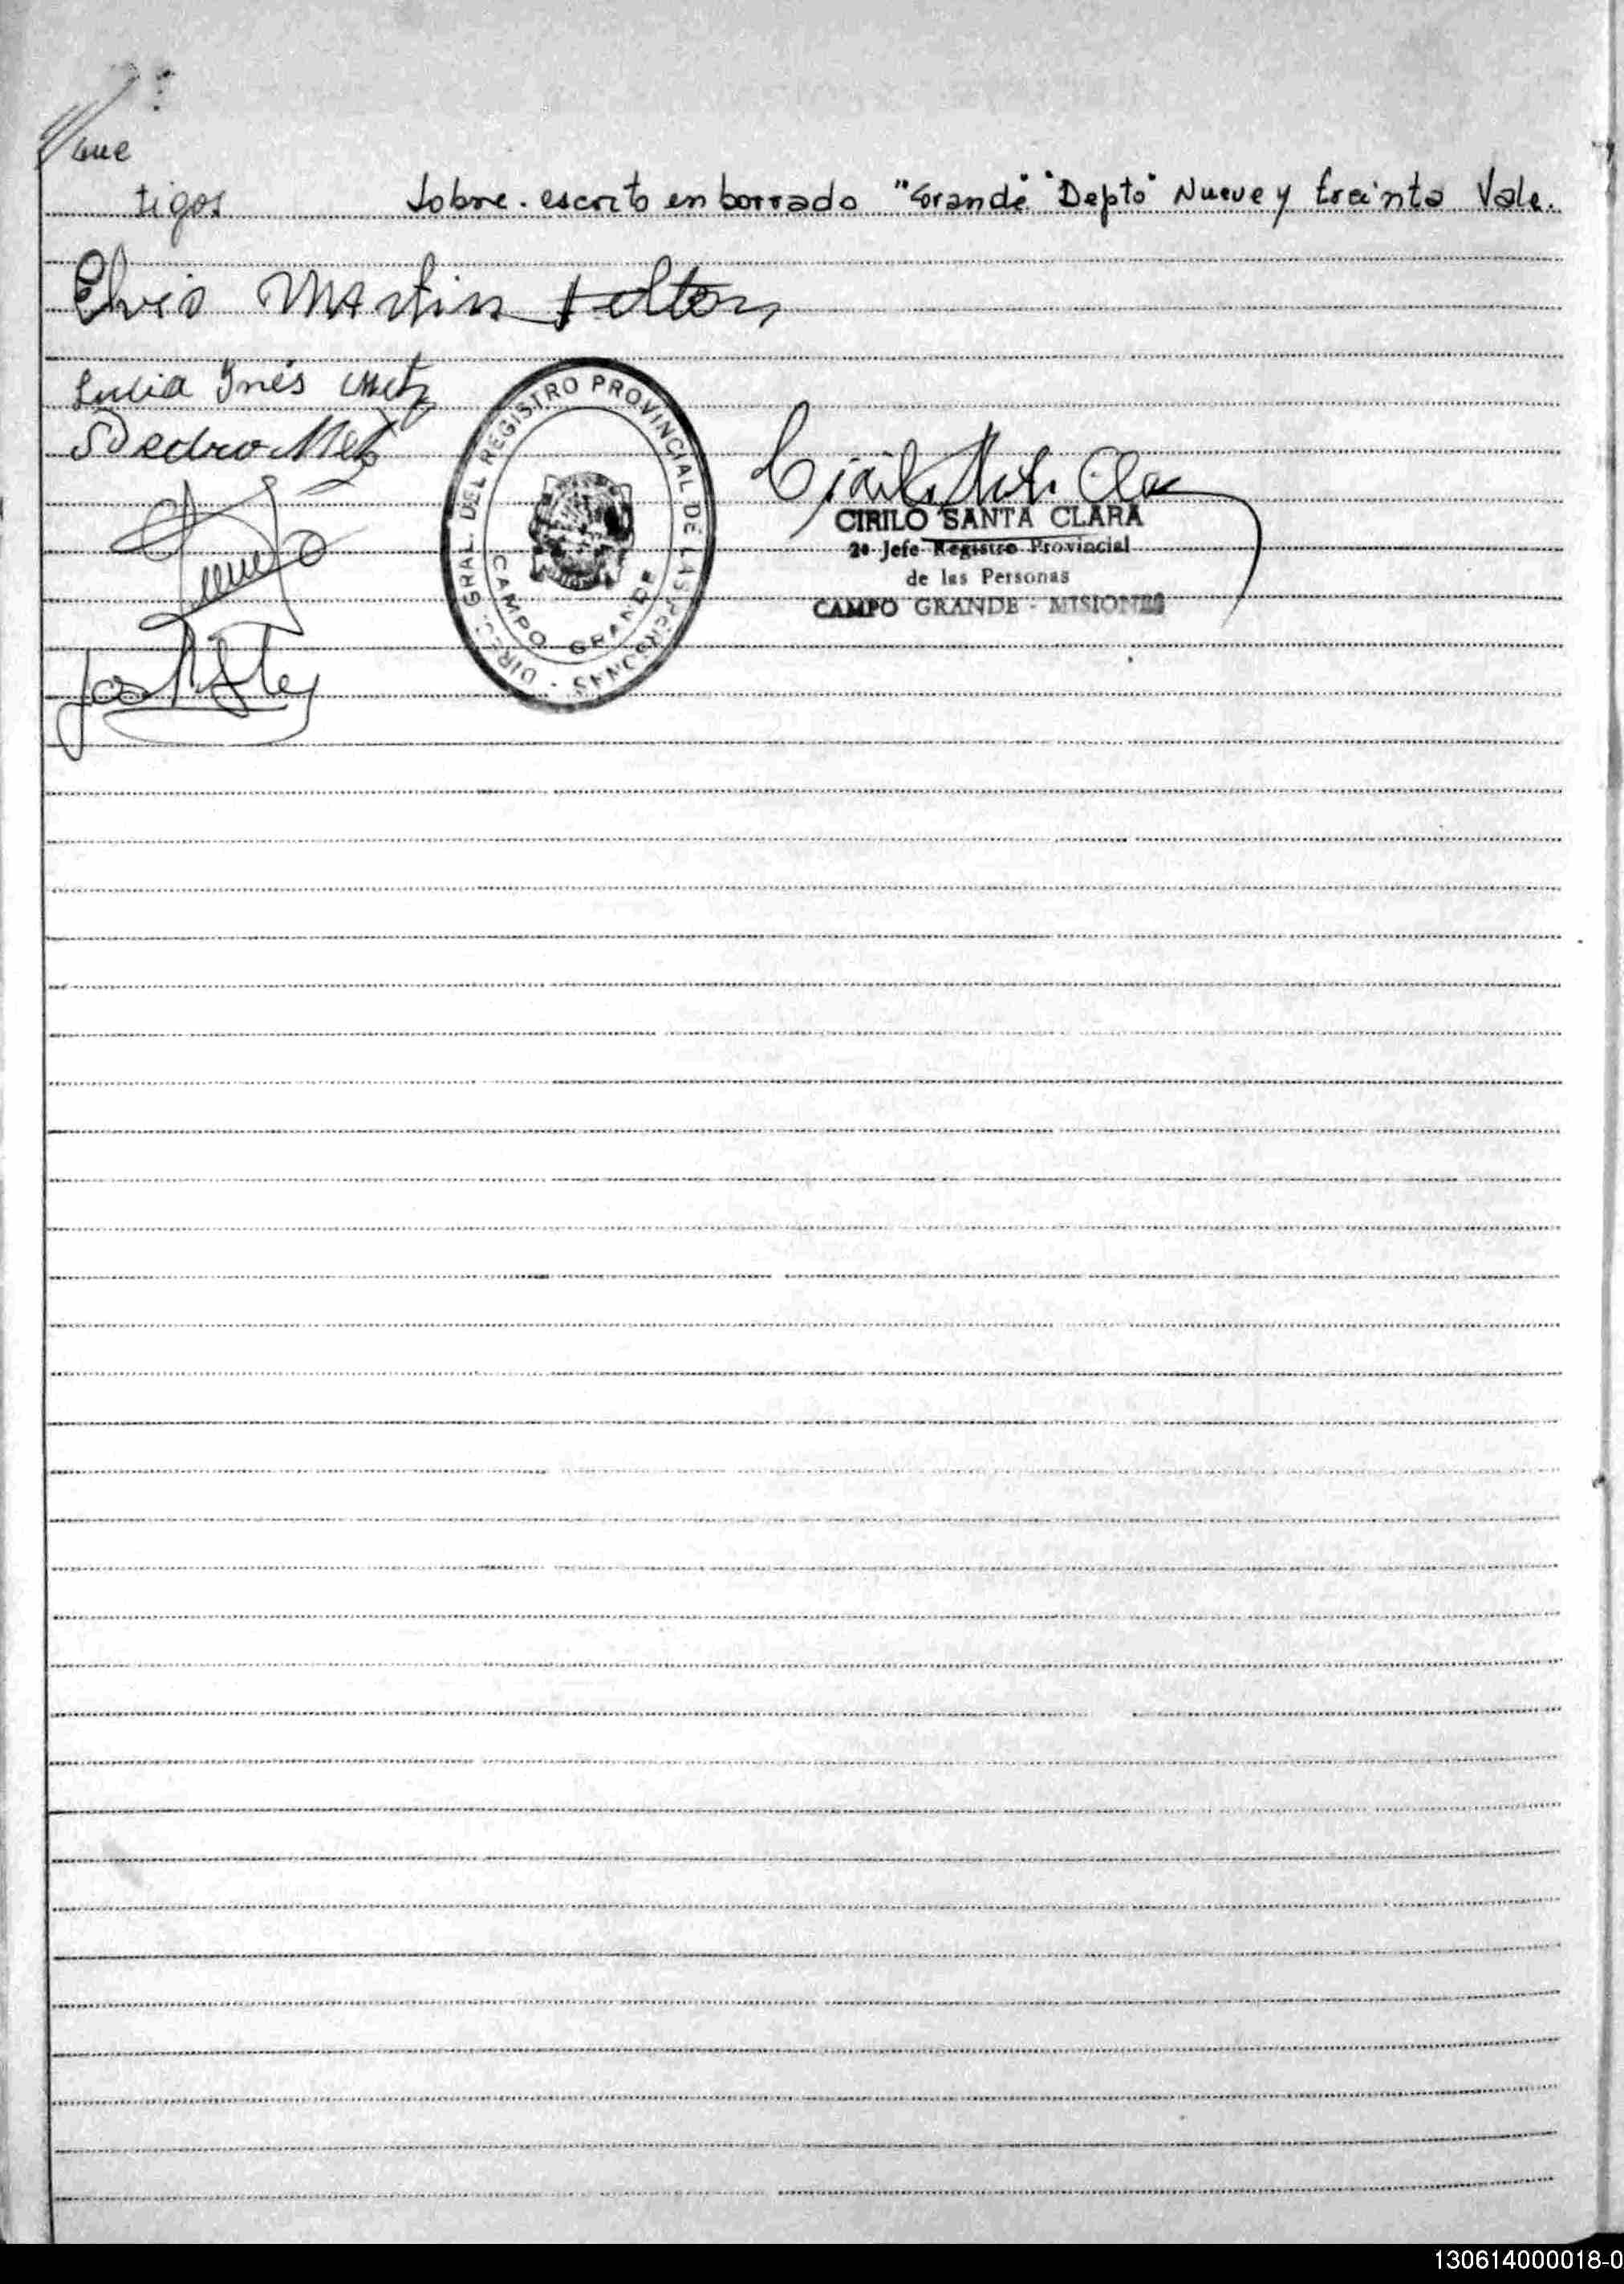 que
tigos Sobre-escrito en borrado "Grande" "Depto" Nueve y treinta Vale.
Elvio Martin
Lucia Inés Metz
Pedro Metz
DIREC. GRAL. DEL REGISTRO PROVINCIAL DE LAS PERSONAS
CAMPO GRANDE
CIRILO SANTA CLARA
2º Jefe Registro Provincial
de las Personas
CAMPO GRANDE - MISIONES
130614000018-0